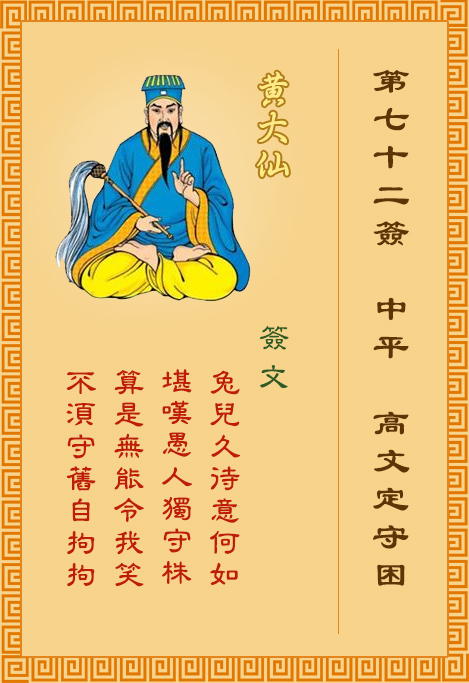 第七十二簽 中平 高文定守困
黃大仙
簽文
兔兒久待意何如
堪嘆愚人獨守株
算是無能令我笑
不須守舊自拘拘